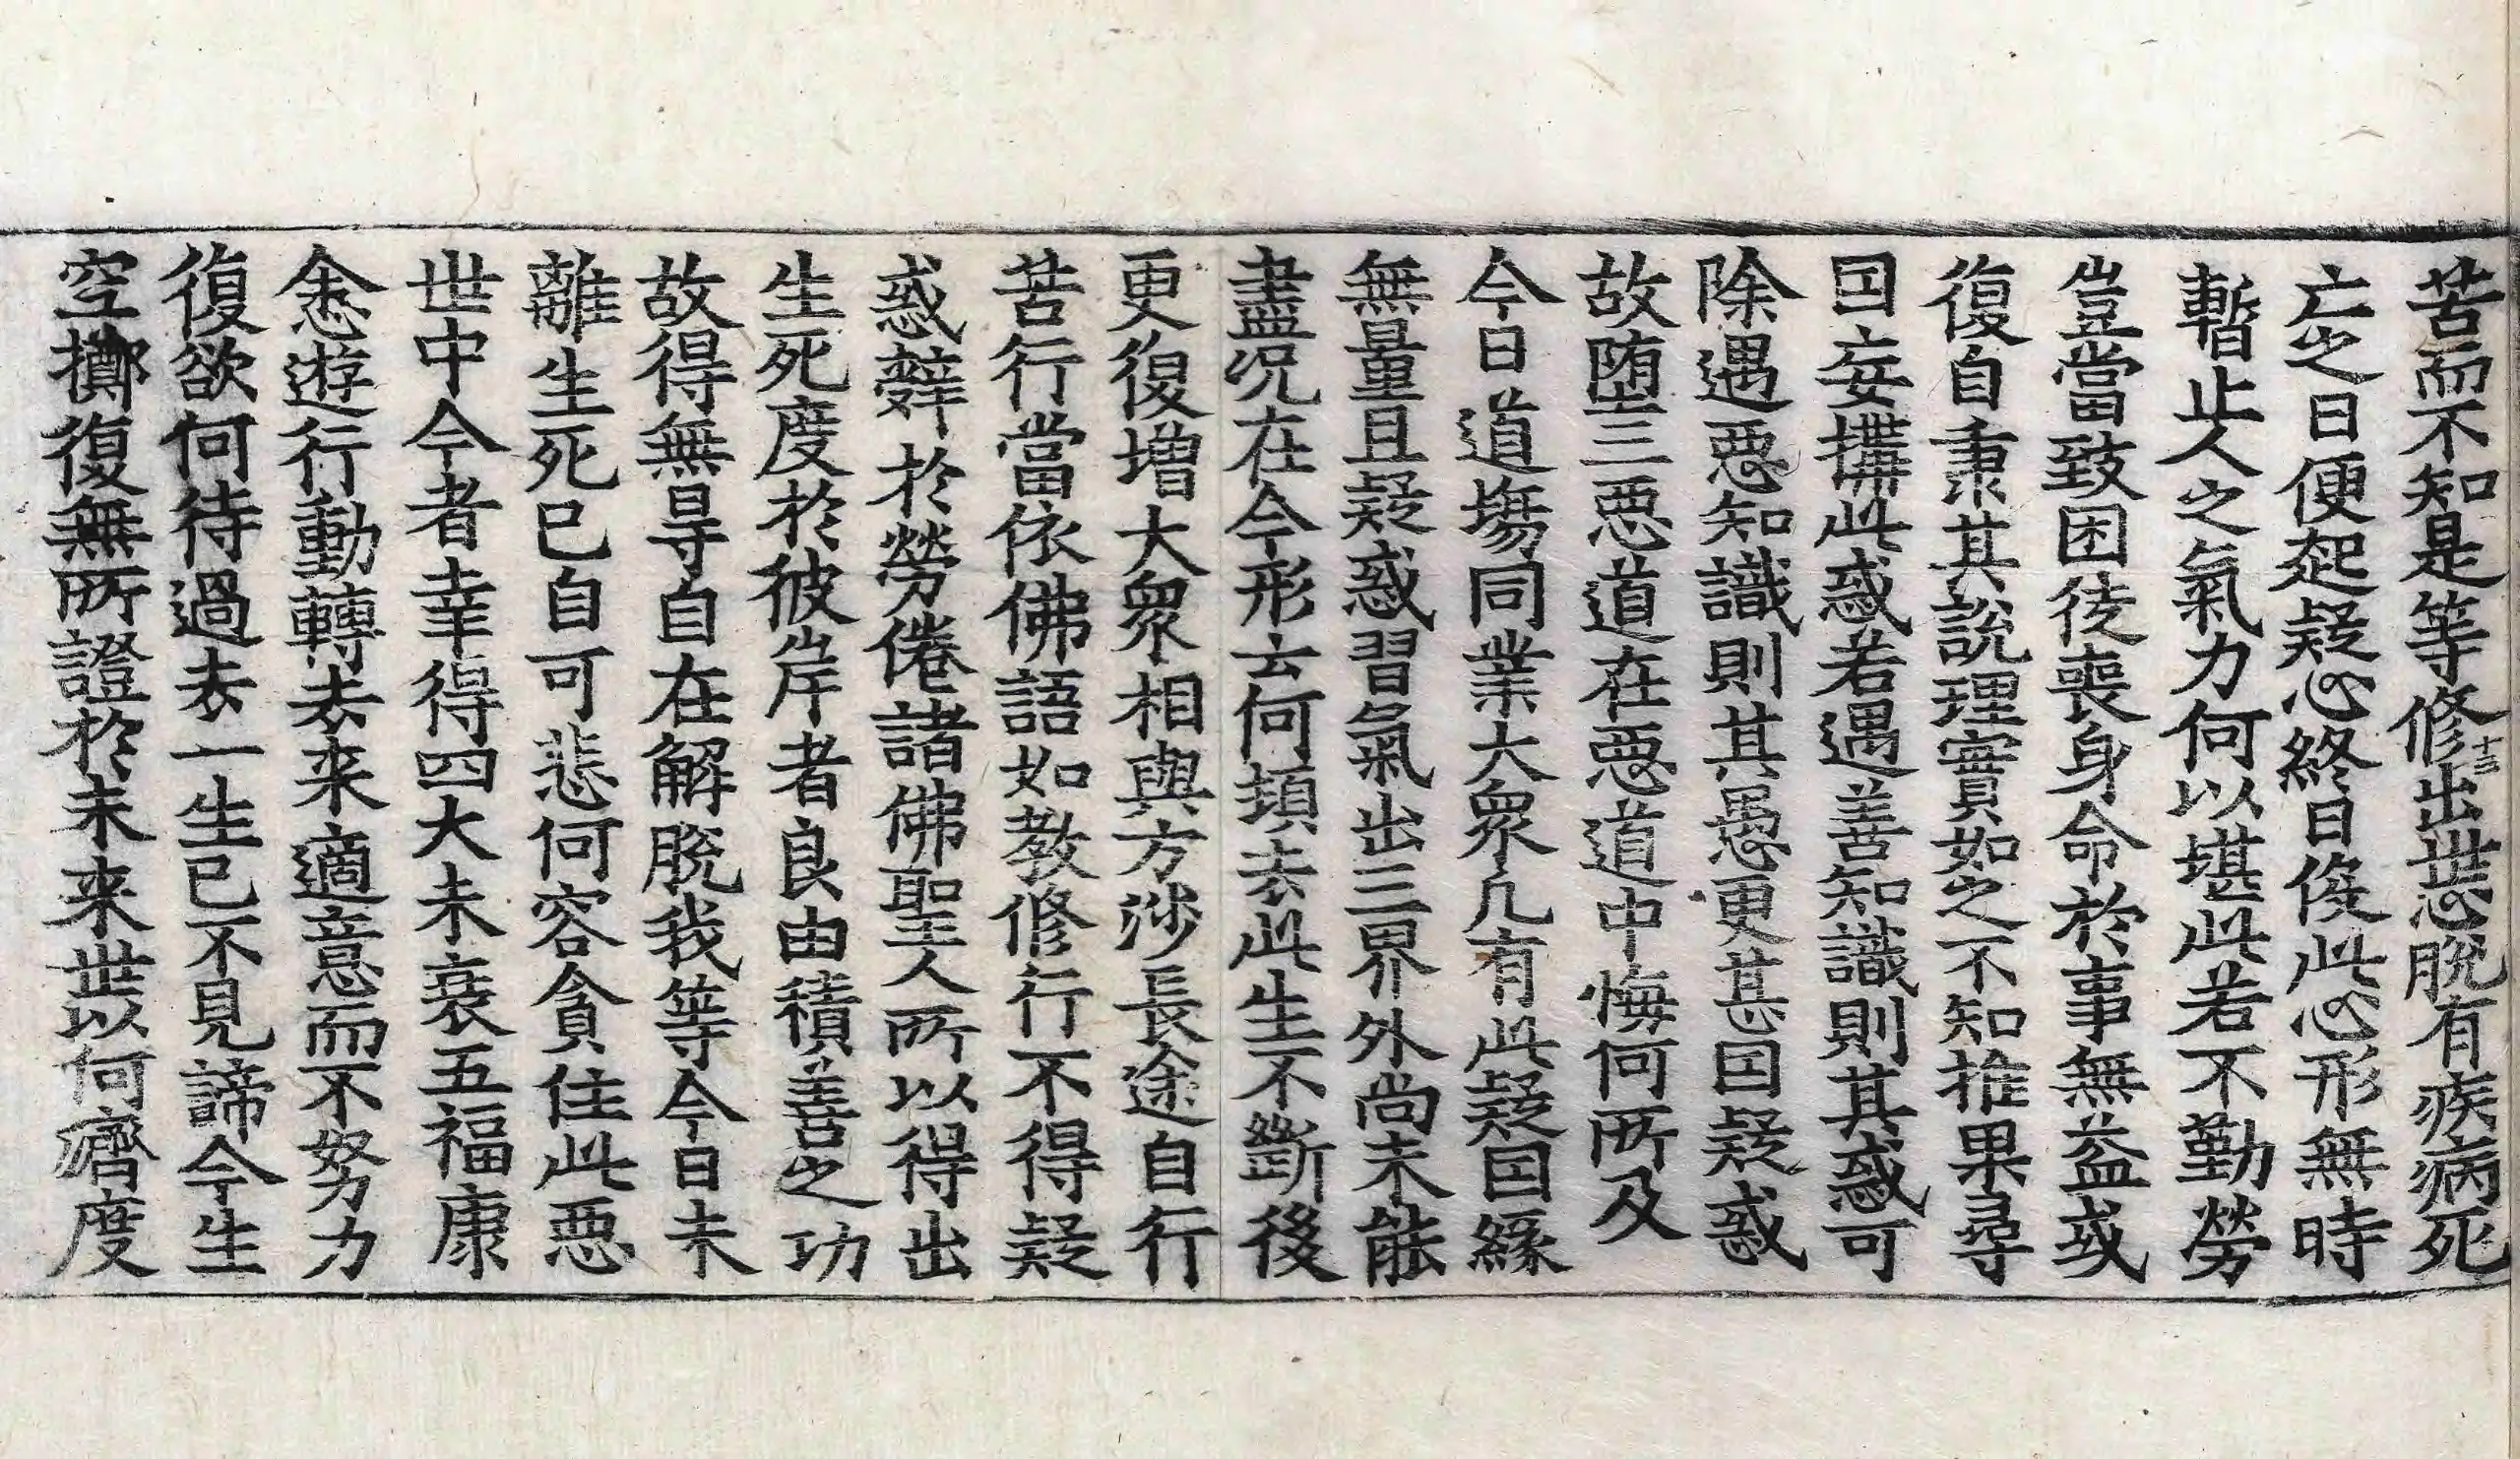 苦而不知是等修出世怨脫有疾病死
十三
亡之日便起疑心終日俊此心形無時
暫止人之氣力何以堪此若不勤勞
豈當致困徒喪身命於事無益或
復自秉其說理實如之不知推果尋
因妄搆此惑若遇善知識則其惑可
除遇惡知識則其愚更甚因疑惑
故墮三惡道在惡道中悔何所及
今日道場同業大衆几有此疑因緣
無量且疑惑習氣出三界外尚未能
盡况在今形云何頓去此生不斷後
更復增大衆相與方涉長途自行
苦行當依佛語如教修行不得疑
惑辤於勞倦諸佛聖人所以得出
生死度於彼岸者良由積善之功
故得無㝵自在解脫我等今日未
離生死已自可悲何容貪住此惡
世中今者幸得四大未衰五福康
悆遊行動轉去来適意而不努力
復欲何待過去一生已不見諦今生
空擲復無所證於未来世以何濟度